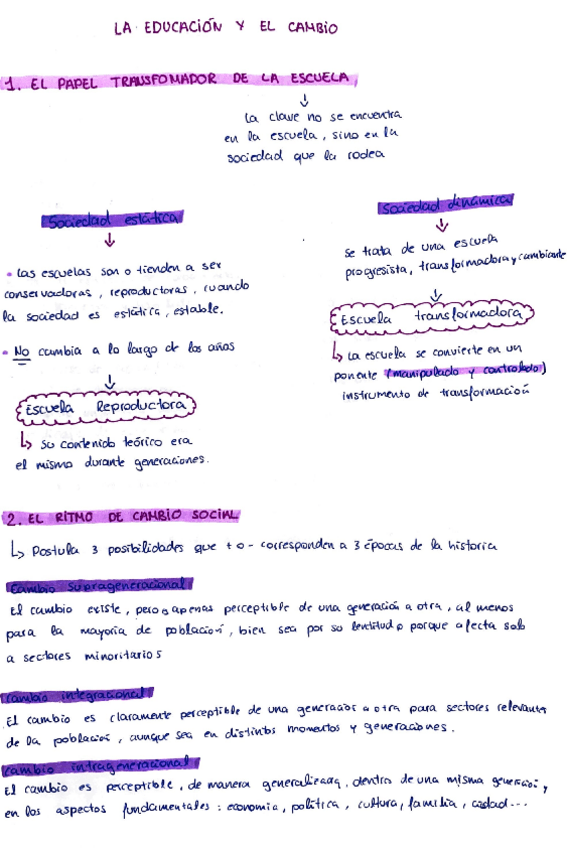 LA EDUCACIÓN Y EL CAMBIO
1. EL PAPEL TRANSFOMADOR DE LA ESCUELA
↓
La clave no se encuentra
en la escuela, sino en la
sociedad que la rodea
Sociedad estática
↓
• Las escuelas son o tienden a ser
conservadoras, reproductoras, cuando
la sociedad es estática, estable.
• No cambia a lo largo de los años
↓
Escuela Reproductora
↳ su contenido teórico era
el mismo durante generaciones.
Sociedad dinámica
↓
se trata de una escuela
progresista, transformadora y cambiante
↓
Escuela transformadora
↳ La escuela se convierte en un
ponente (manipulado y controlado)
instrumento de transformación
2. EL RITMO DE CAMBIO SOCIAL
↳ Postula 3 posibilidades que + o - corresponden a 3 épocas de la historia
Cambio suprageneracional
El cambio existe, pero apenas perceptible de una generación a otra, al menos
para la mayoría de población, bien sea por su lentitud o porque afecta solo
a sectores minoritarios
Cambio integracional
El cambio es claramente perceptible de una generación a otra para sectores relevantes
de la población, aunque sea en distintos momentos y generaciones.
Cambio intrageneracional
El cambio es perceptible, de manera generalizada, dentro de una misma generación y
en los aspectos fundamentales: economía, política, cultura, familia, ciudad...